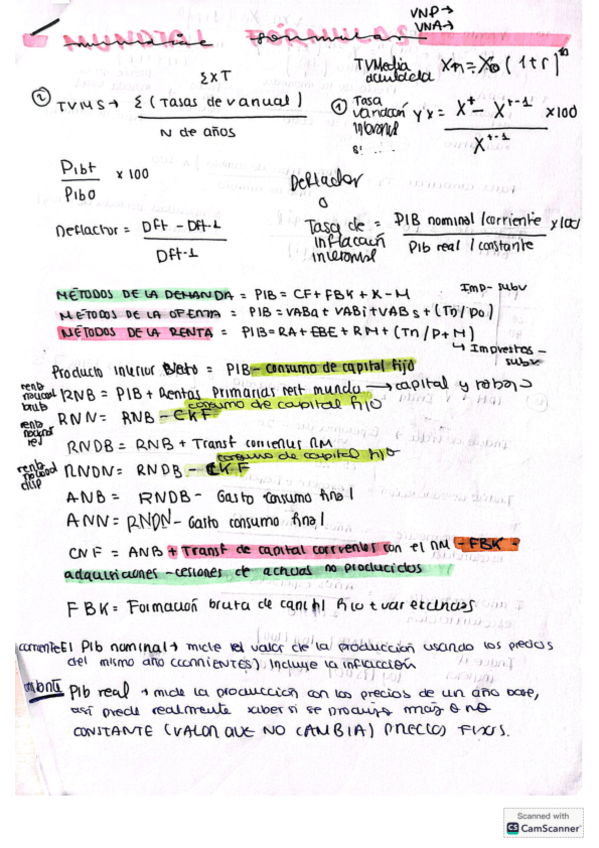 VNP →
VNA →
MUNDIAL FÓRMULAS
ΣXT
② TVMS → Σ (Tasas de v anual) / N de años
TVMedia acumulada Xn = X0 (1+r)^n
① Tasa variación interanual y'x = X^t - X^t-1 / X^t-1 x100
Pibt / Pib0 x 100
Deflactor = Dft - Dft-1 / Dft-1
Deflactor o Tasa de inflación interanual = PIB nominal / corriente / Pib real / constante x100
Imp - subv
MÉTODOS DE LA DEMANDA = PIB = CF + FBK + X - M
MÉTODOS DE LA OFERTA = PIB = VABa + VABi + VABs + (Tn/po)
MÉTODOS DE LA RENTA = PIB = RA + EBE + RM + (Tn/P+M)
↳ Impuestos - subv
Producto Interior Neto = PIB - consumo de capital fijo
renta nacional bruta RNB = PIB + Rentas Primarias rest mundo → capital y
consumo de capital fijo
renta nacional net RNN = RNB - CKF
RNDB = RNB + Transf corrientes RM
consumo de capital fijo
renta nacional disp RNDN = RNDB - CKF
ANB = RNDB - Gasto consumo final
ANN = RNDN - Gasto consumo final
CNF = ANB + Transf de capital corrientes con el RM - FBK -
adquisiciones - cesiones de activos no producidos
FBK = Formación bruta de capital fijo + var existencias
corriente El Pib nominal → mide el valor de la producción usando los precios
del mismo año (corrientes). Incluye la inflacción
constante Pib real → mide la producción con los precios de un año base,
así puede realmente saber si se produjo más o no
CONSTANTE (VALOR QUE NO CAMBIA) PRECIOS FIJOS.
Scanned with
CS CamScanner